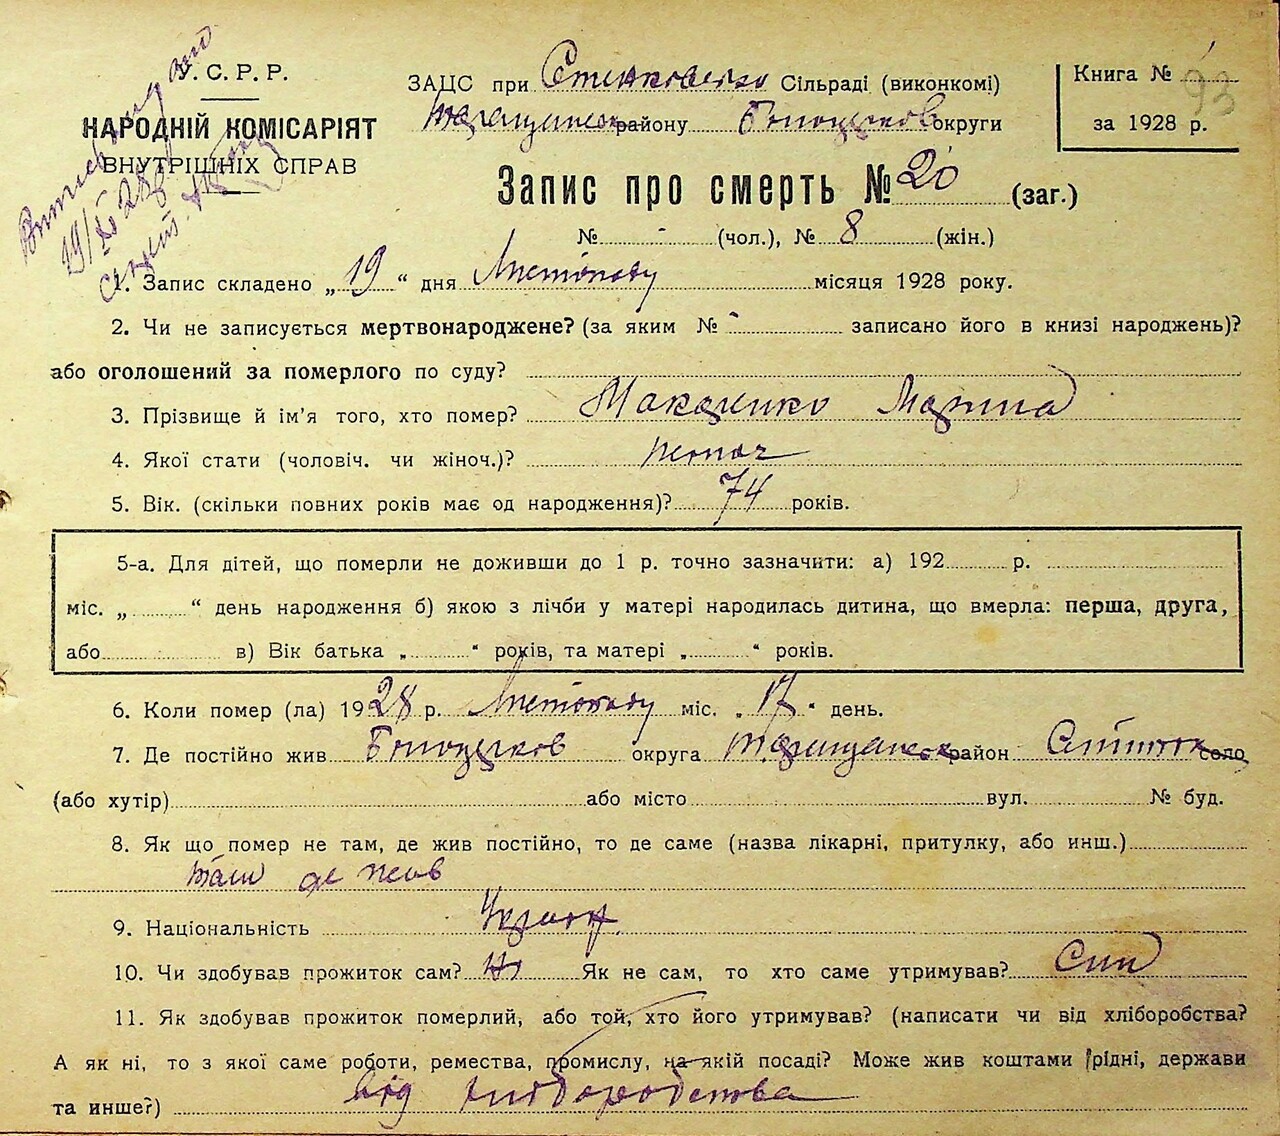 У.С.Р.Р.
НАРОДНІЙ КОМІСАРІЯТ
ВНУТРІШНІХ СПРАВ
ЗАЦС при Сільраді (виконкомі)
району округи
Книга №
за 1928 р.
93
Запис про смерть № 20 (заг.)
№ - (чол.), № 8 (жін.)
1. Запис складено „ 19 “ дня Листопаду місяця 1928 року.
2. Чи не записується мертвонароджене? (за яким № - записано його в книзі народжень)?
або оголошений за померлого по суду?
3. Прізвище й ім'я того, хто помер? Макаренко Марина
4. Якої стати (чоловіч. чи жіноч.)? жіноч
5. Вік. (скільки повних років має од народження)? 74 років.
5-а. Для дітей, що померли не доживши до 1 р. точно зазначити: а) 192 р.
міс. „ “ день народження б) якою з лічби у матері народилась дитина, що вмерла: перша, друга,
або в) Вік батька „ “ років, та матері „ “ років.
6. Коли помер (ла) 1928 р. Листопаду міс. „ 17 “ день.
7. Де постійно жив округа район село
(або хутір) або місто вул. № буд.
8. Як що помер не там, де жив постійно, то де саме (назва лікарні, притулку, або инш.)
там де жив
9. Національність
10. Чи здобував прожиток сам? ні Як не сам, то хто саме утримував? Син
11. Як здобував прожиток померлий, або той, хто його утримував? (написати чи від хліборобства?
А як ні, то з якої саме роботи, ремества, промислу, на якій посаді? Може жив коштами рідні, держави
та инше?) від хліборобства